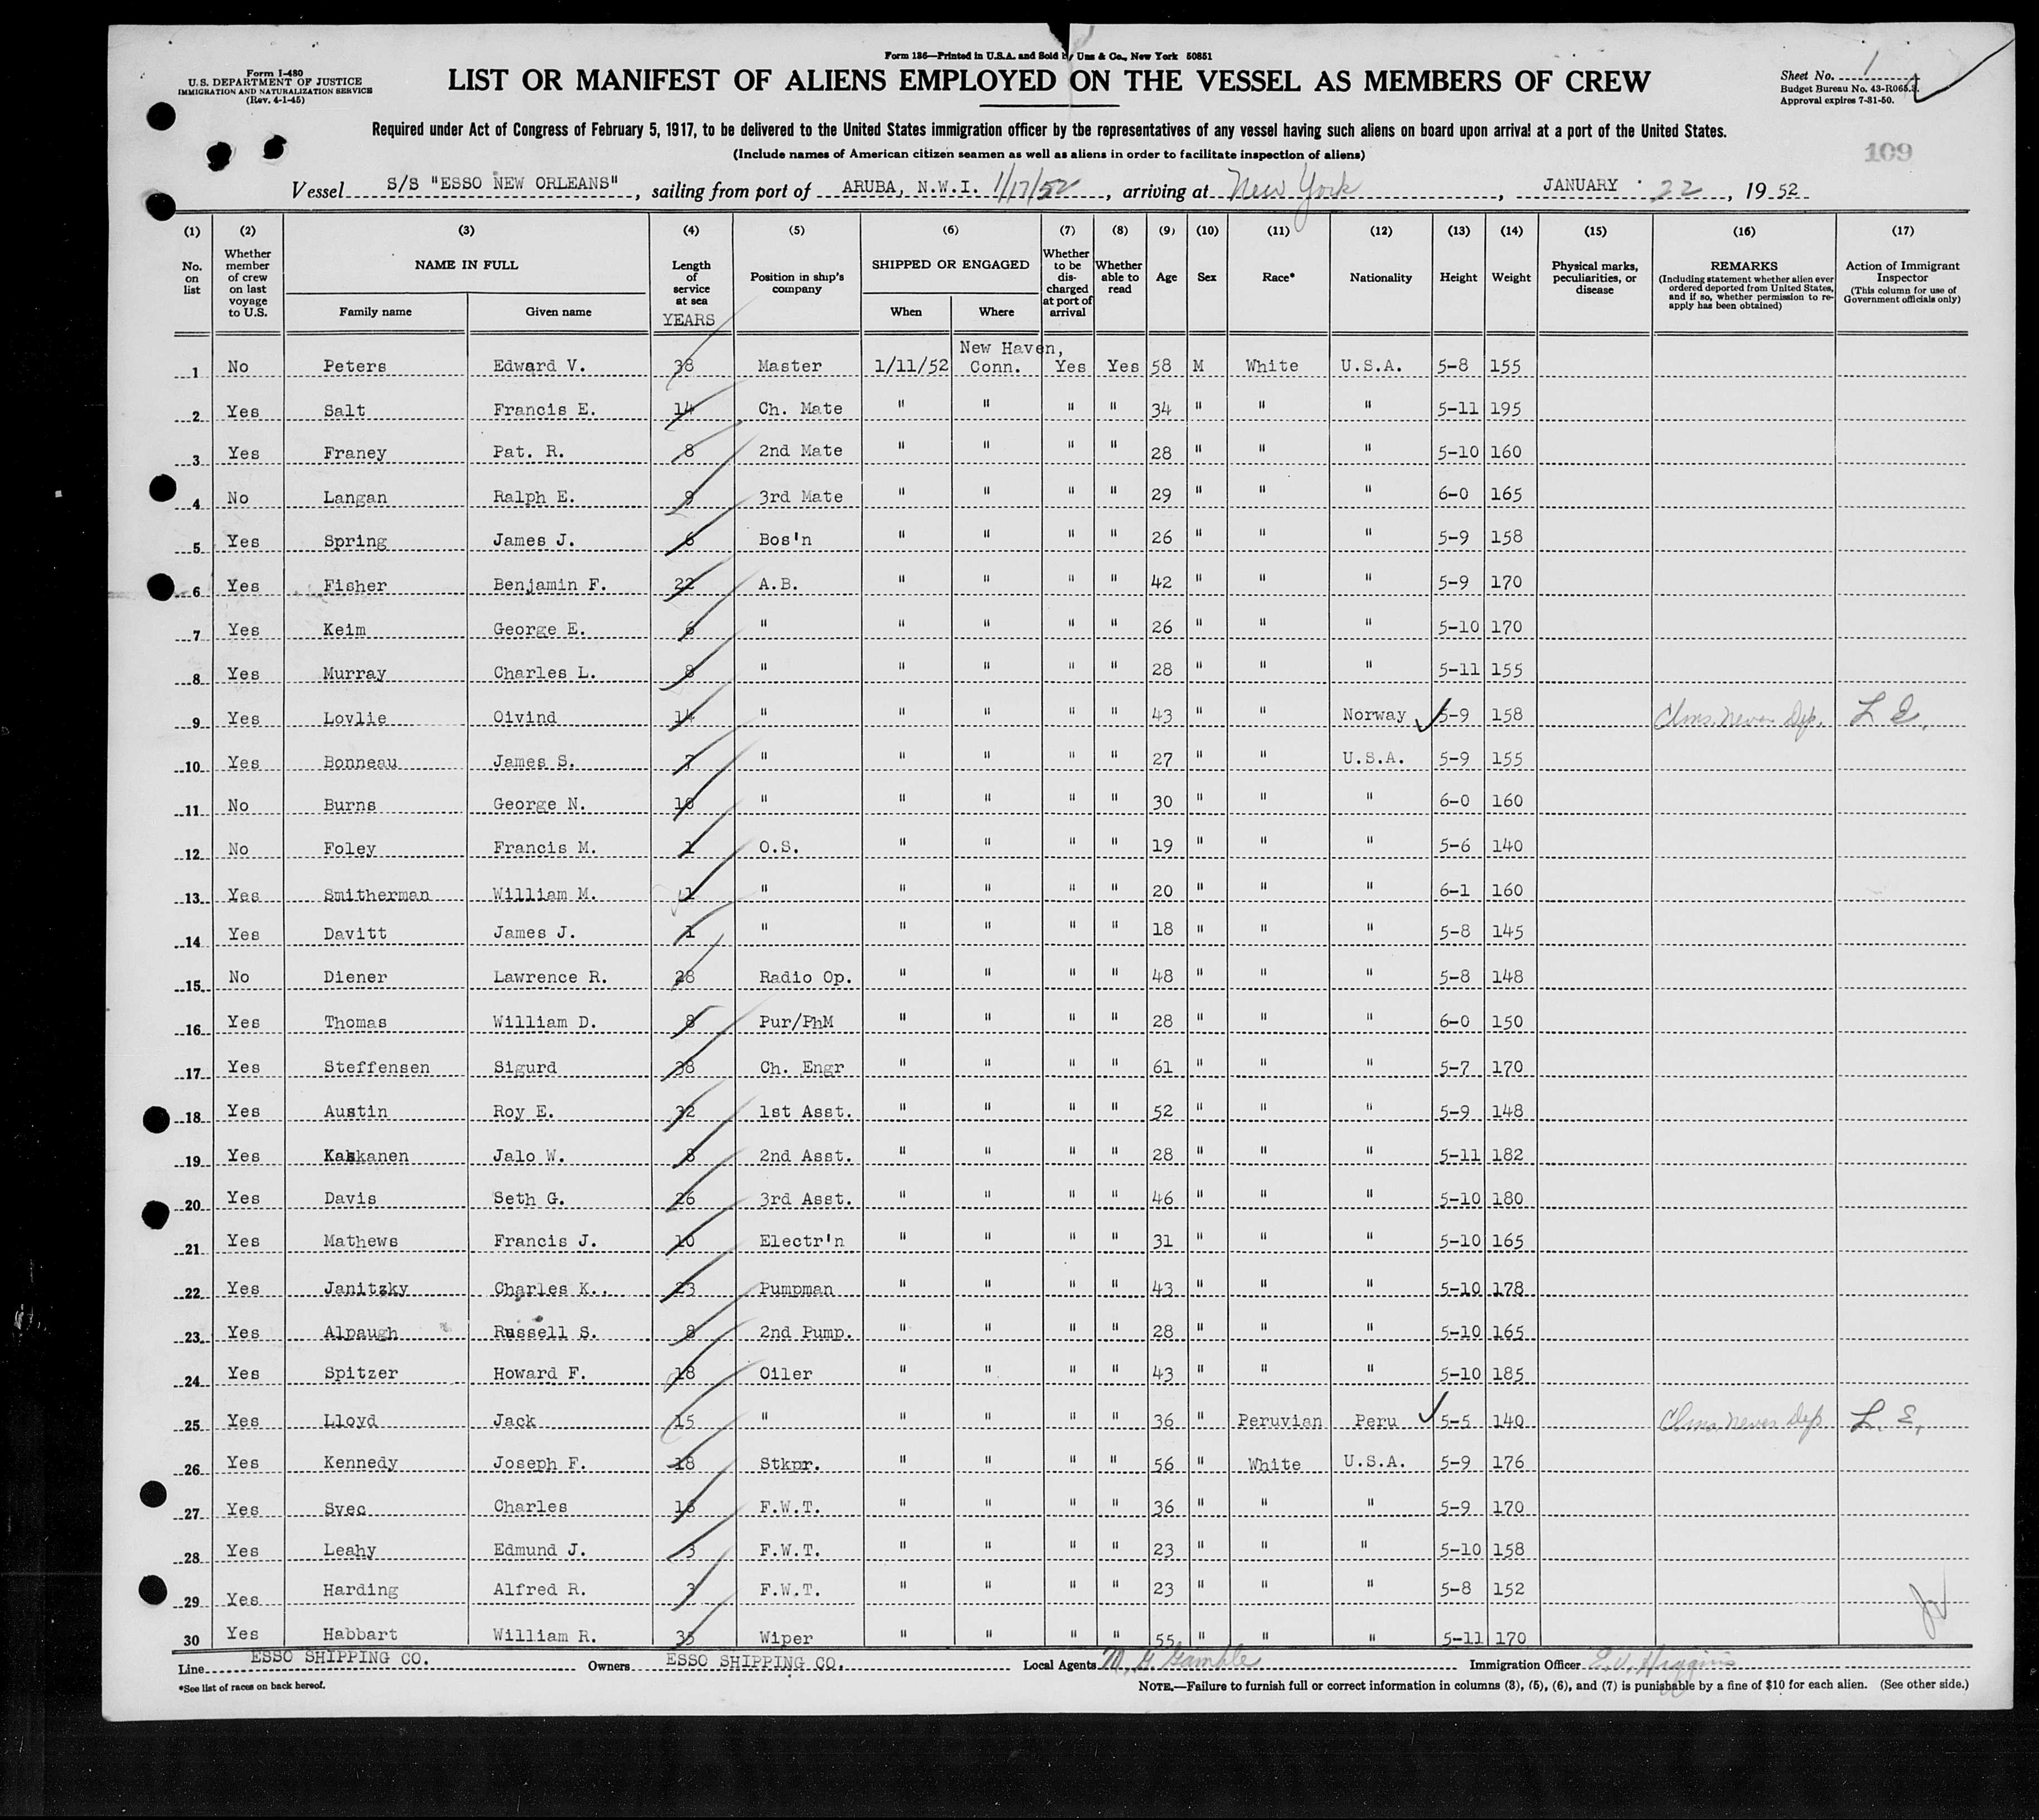 Form 136—Printed in U.S.A. and Sold by Unz & Co., New York 50851
Form I-480
U.S. DEPARTMENT OF JUSTICE
IMMIGRATION AND NATURALIZATION SERVICE
(Rev. 4-1-45)
LIST OR MANIFEST OF ALIENS EMPLOYED ON THE VESSEL AS MEMBERS OF CREW
Sheet No. 1
Budget Bureau No. 43-R065.2.
Approval expires 7-31-50.
Required under Act of Congress of February 5, 1917, to be delivered to the United States immigration officer by the representatives of any vessel having such aliens on board upon arrival at a port of the United States.
(Include names of American citizen seamen as well as aliens in order to facilitate inspection of aliens)
109
Vessel S/S "ESSO NEW ORLEANS", sailing from port of ARUBA, N.W.I. 1/17/52, arriving at New York, JANUARY 22, 19 52
(1) (2) (3) (4) (5) (6) (7) (8) (9) (10) (11) (12) (13) (14) (15) (16) (17)
No. on list
Whether member of crew on last voyage to U.S.
NAME IN FULL
Family name
Given name
Length of service at sea
YEARS
Position in ship's company
SHIPPED OR ENGAGED
When
Where
Whether to be discharged at port of arrival
Whether able to read
Age
Sex
Race*
Nationality
Height
Weight
Physical marks, peculiarities, or disease
REMARKS
(Including statement whether alien ever ordered deported from United States, and if so, whether permission to reapply has been obtained)
Action of Immigrant Inspector
(This column for use of Government officials only)
1 No Peters Edward V. 38 Master 1/11/52 New Haven, Conn. Yes Yes 58 M White U.S.A. 5-8 155
2 Yes Salt Francis E. 14 Ch. Mate " " " " 34 " " " 5-11 195
3 Yes Franey Pat. R. 8 2nd Mate " " " " 28 " " " 5-10 160
4 No Langan Ralph E. 9 3rd Mate " " " " 29 " " " 6-0 165
5 Yes Spring James J. 6 Bos'n " " " " 26 " " " 5-9 158
6 Yes Fisher Benjamin F. 22 A.B. " " " " 42 " " " 5-9 170
7 Yes Keim George E. 6 " " " " " 26 " " " 5-10 170
8 Yes Murray Charles L. 8 " " " " " 28 " " " 5-11 155
9 Yes Lovlie Oivind 14 " " " " " 43 " " Norway 5-9 158 Clms. Never Dep. L. E.
10 Yes Bonneau James S. 7 " " " " " 27 " " U.S.A. 5-9 155
11 No Burns George N. 10 " " " " " 30 " " " 6-0 160
12 No Foley Francis M. 1 O.S. " " " " 19 " " " 5-6 140
13 Yes Smitherman William M. 1 " " " " " 20 " " " 6-1 160
14 Yes Davitt James J. 1 " " " " " 18 " " " 5-8 145
15 No Diener Lawrence R. 28 Radio Op. " " " " 48 " " " 5-8 148
16 Yes Thomas William D. 8 Pur/PhM " " " " 28 " " " 6-0 150
17 Yes Steffensen Sigurd 38 Ch. Engr " " " " 61 " " " 5-7 170
18 Yes Austin Roy E. 32 1st Asst. " " " " 52 " " " 5-9 148
19 Yes Kaskanen Jalo W. 8 2nd Asst. " " " " 28 " " " 5-11 182
20 Yes Davis Seth G. 26 3rd Asst. " " " " 46 " " " 5-10 180
21 Yes Mathews Francis J. 10 Electr'n " " " " 31 " " " 5-10 165
22 Yes Janitzky Charles K. 23 Pumpman " " " " 43 " " " 5-10 178
23 Yes Alpaugh Russell S. 8 2nd Pump. " " " " 28 " " " 5-10 165
24 Yes Spitzer Howard F. 18 Oiler " " " " 43 " " " 5-10 185
25 Yes Lloyd Jack 15 " " " " " 36 " Peruvian Peru 5-5 140 Clms. Never Dep L. E.
26 Yes Kennedy Joseph F. 18 Stkpr. " " " " 56 " White U.S.A. 5-9 176
27 Yes Svec Charles 16 F.W.T. " " " " 36 " " " 5-9 170
28 Yes Leahy Edmund J. 3 F.W.T. " " " " 23 " " " 5-10 158
29 Yes Harding Alfred R. 3 F.W.T. " " " " 23 " " " 5-8 152
30 Yes Habbart William R. 35 Wiper " " " " 55 " " " 5-11 170
Line ESSO SHIPPING CO. Owners ESSO SHIPPING CO. Local Agents M. G. Gamble Immigration Officer E. V. Higgins
*See list of races on back hereof.
NOTE.—Failure to furnish full or correct information in columns (3), (5), (6), and (7) is punishable by a fine of $10 for each alien. (See other side.)